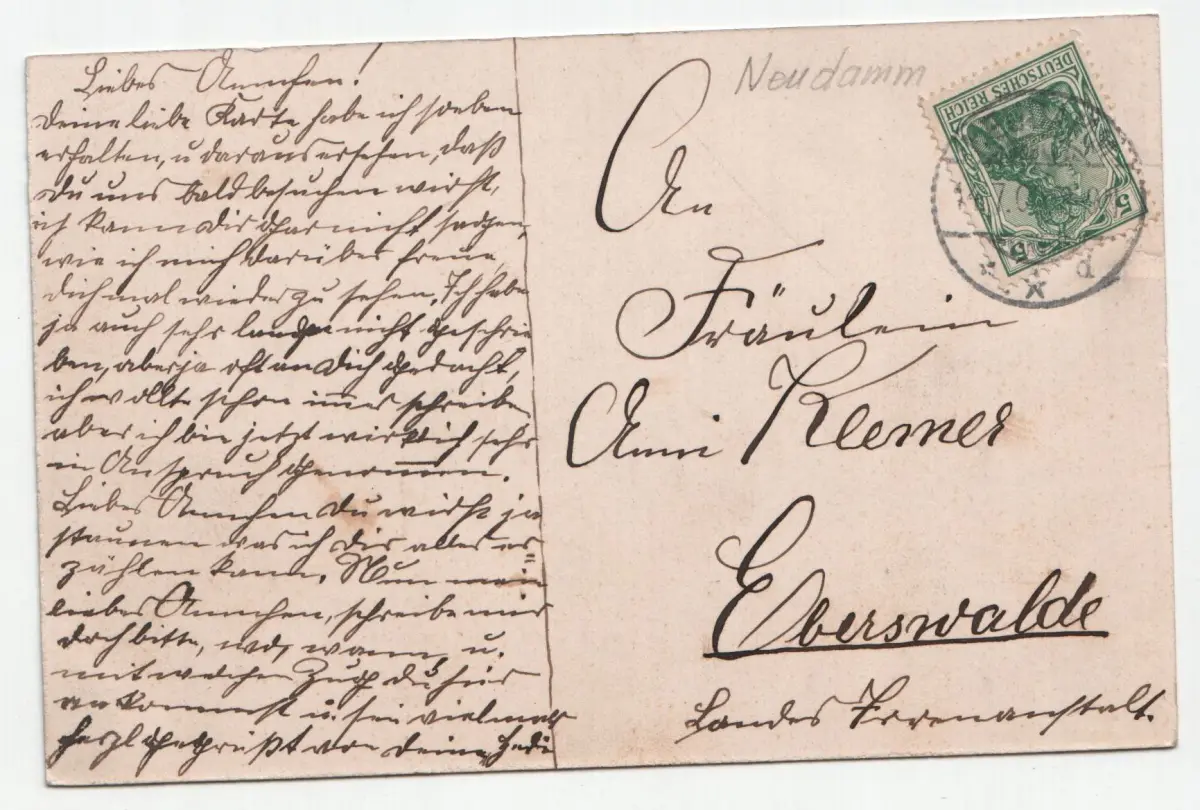 Liebes Annchen!
Deine liebe Karte habe ich soeben
erhalten, u daraus ersehen, daß
Du uns bald besuchen wirst,
ich kann Dir gar nicht sagen,
wie ich mich darüber freue,
Dich mal wieder zu sehen. Ich habe
ja auch sehr lange nicht geschrie
ben, aber ja oft an Dich gedacht,
ich wollte schon immer schreibe
aber ich bin jetzt wirklich sehr
in Anspruch genommen.
Liebes Annchen Du wirst ja
staunen was ich Dir alles er
zählen kann. Nun mein
liebes Annchen, schreibe mir
doch bitte, wann, u.
mit welchen Zug Du hier
ankommst u. sei vielmals
herzl gegrüßt von Deine Hedi
Neudamm
An
Fräulein
Anni Klemer
Eberswalde
Landes Irrenanstalt.
DEUTSCHES REICH
5
5
d